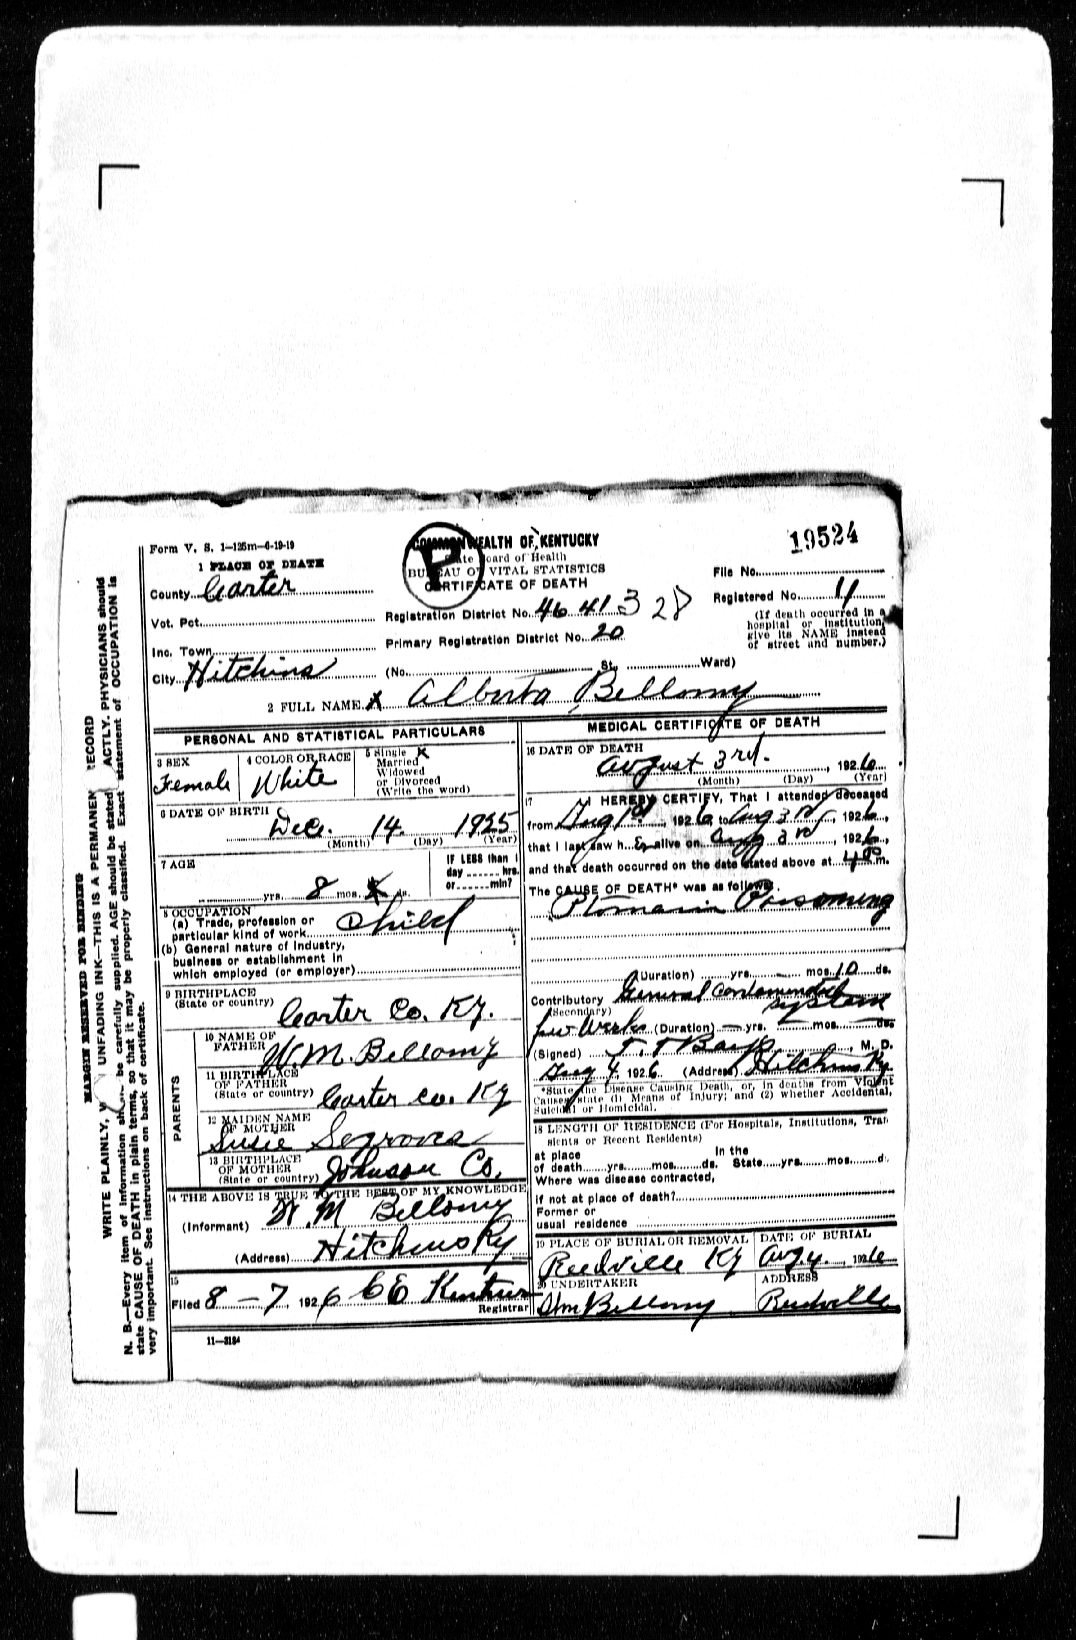 19524
Form V. S. 1—125m—6-19-19
COMMONWEALTH OF KENTUCKY
P
State Board of Health
BUREAU OF VITAL STATISTICS
CERTIFICATE OF DEATH
1 PLACE OF DEATH
County Carter
File No.
Registered No. 11
Vot. Pct.
Registration District No. 46 41 3 28
(If death occurred in a
hospital or institution,
give its NAME instead
of street and number.)
Inc. Town
Primary Registration District No. 20
City Hitchins
(No. St. Ward)
2 FULL NAME Alberta Bellomy
PERSONAL AND STATISTICAL PARTICULARS
3 SEX
Female
4 COLOR OR RACE
White
5 Single x
Married
Widowed
or Divorced
(Write the word)
6 DATE OF BIRTH
Dec. 14 1925
(Month) (Day) (Year)
7 AGE
yrs. 8 mos. ds.
IF LESS than 1
day hrs.
or min?
8 OCCUPATION
(a) Trade, profession or
particular kind of work Child
(b) General nature of Industry,
business or establishment in
which employed (or employer)
9 BIRTHPLACE
(State or country) Carter Co. Ky.
PARENTS
10 NAME OF
FATHER W. M. Bellomy
11 BIRTHPLACE
OF FATHER
(State or country) Carter Co. Ky
12 MAIDEN NAME
OF MOTHER
Susie Segroves
13 BIRTHPLACE
OF MOTHER
(State or country) Johnson Co.
14 THE ABOVE IS TRUE TO THE BEST OF MY KNOWLEDGE
(Informant) W. M Bellomy
(Address) Hitchins Ky
15
Filed 8 – 7, 1926 C E
Registrar
11—3184
MEDICAL CERTIFICATE OF DEATH
16 DATE OF DEATH
August 3rd., 1926
(Month) (Day) (Year)
17
I HEREBY CERTIFY, That I attended deceased
from Aug 1st, 1926 to Aug 3rd, 1926,
that I last saw h er alive on Aug 3rd, 1926,
and that death occurred on the date stated above at 4 00 m.
The CAUSE OF DEATH* was as follows:
Ptomain Poisoning
(Duration) yrs. – mos. 10 ds.
Contributory General
(Secondary) system
few Weeks (Duration) — yrs. mos. ds.
(Signed) , M. D.
Aug 4, 1926 (Address) Hitchins Ky
*State the Disease Causing Death, or, in deaths from Violent
Causes, state (1) Means of Injury; and (2) whether Accidental,
Suicidal or Homicidal.
18 LENGTH OF RESIDENCE (For Hospitals, Institutions, Tran
sients or Recent Residents)
at place In the
of death yrs. mos. ds. State yrs. mos. d
Where was disease contracted,
if not at place of death?
Former or
usual residence
19 PLACE OF BURIAL OR REMOVAL
Reedville Ky
DATE OF BURIAL
Aug 4, 1926
20 UNDERTAKER
Wm Bellomy
ADDRESS
Reedville
MARGIN RESERVED FOR BINDING
WRITE PLAINLY, UNFADING INK—THIS IS A PERMANEN RECORD
N. B.—Every item of information sh be carefully supplied. AGE should be stated ACTLY. PHYSICIANS should
state CAUSE OF DEATH in plain terms, so that it may be properly classified. Exact statement of OCCUPATION is
very important. See instructions on back of certificate.